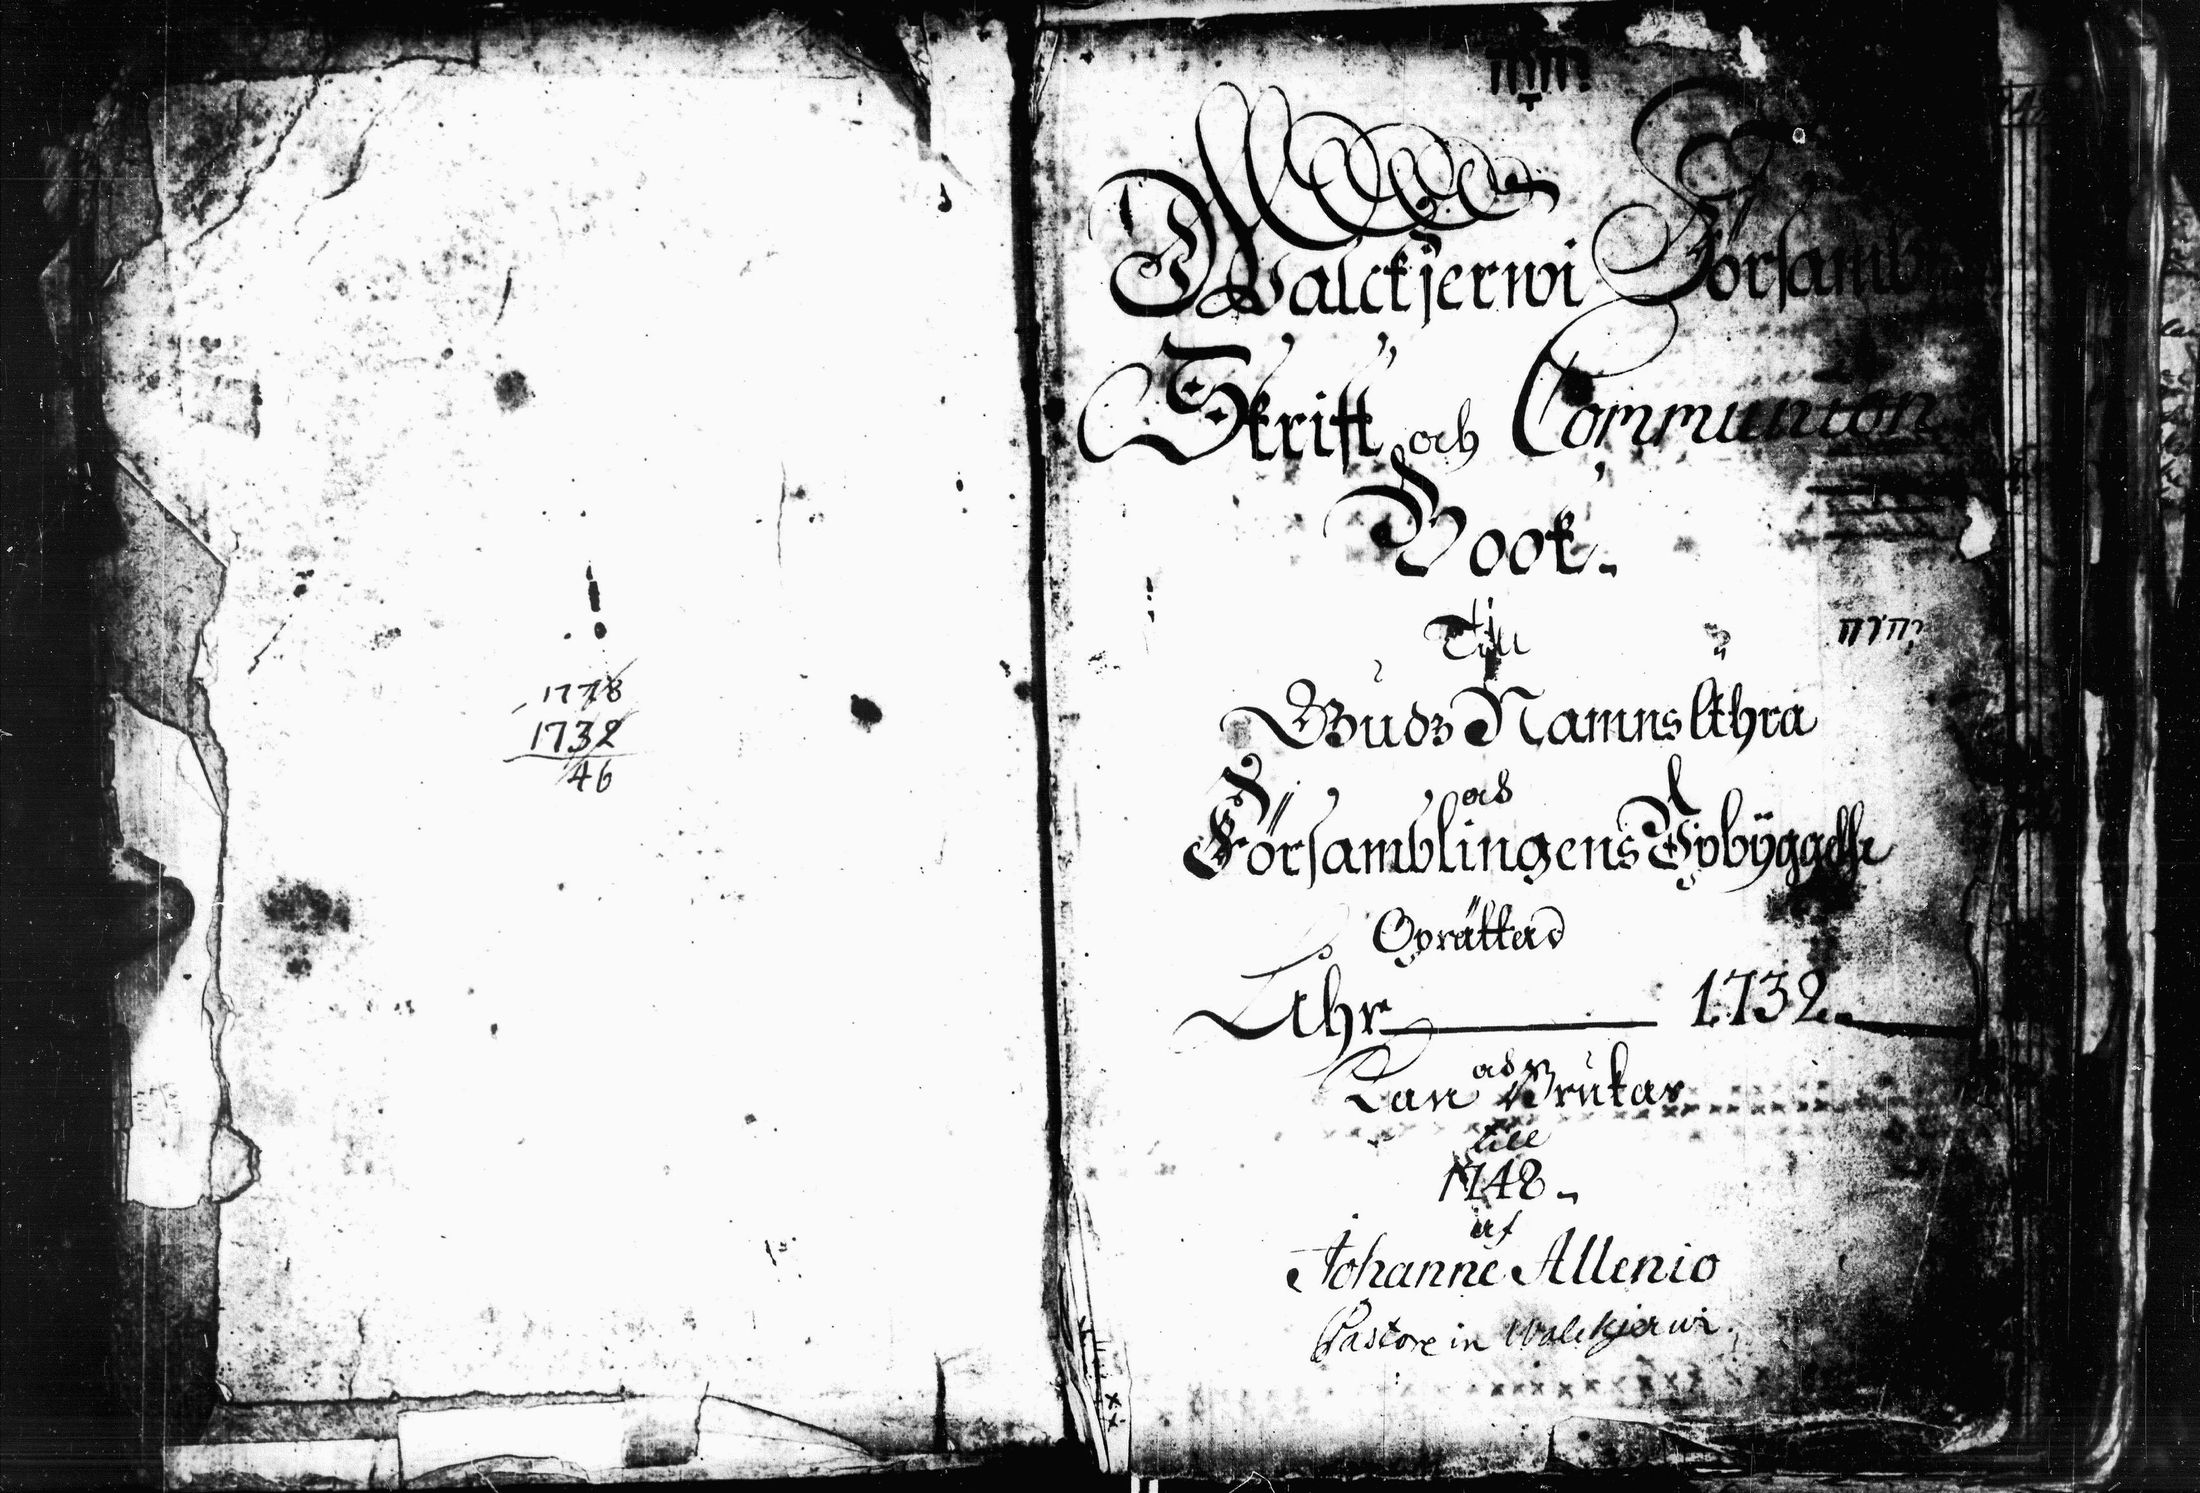 1778
1732
46
Walckjerwi Församb
Skrifft och Communion
Book.
Till
Gudz Namns Ähra
och
Församblingens Upbyggelse
Oprättad
Åhr 1732.
och
Kan Brukas
till
1748.
af
Johanne Allenio
Pastore in Walckjerwi.